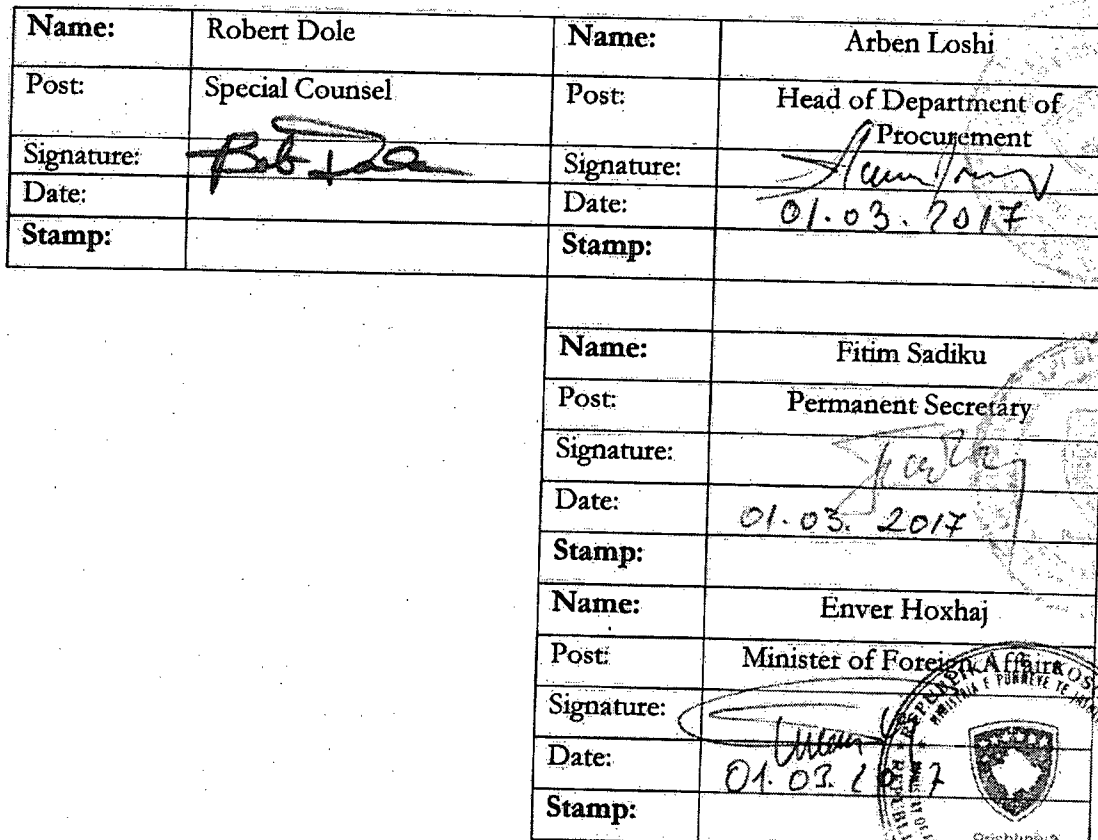 Name: Robert Dole Name: Arben Loshi
Post: Special Counsel Post: Head of Department of
Procurement
Signature: Bob Dole Signature:
Date: Date: 01.03.2017
Stamp: Stamp:
Name: Fitim Sadiku
Post: Permanent Secretary
Signature:
Date: 01.03.2017
Stamp:
Name: Enver Hoxhaj
Post: Minister of Foreign Affairs
Signature:
Date: 01.03.2017
Stamp: